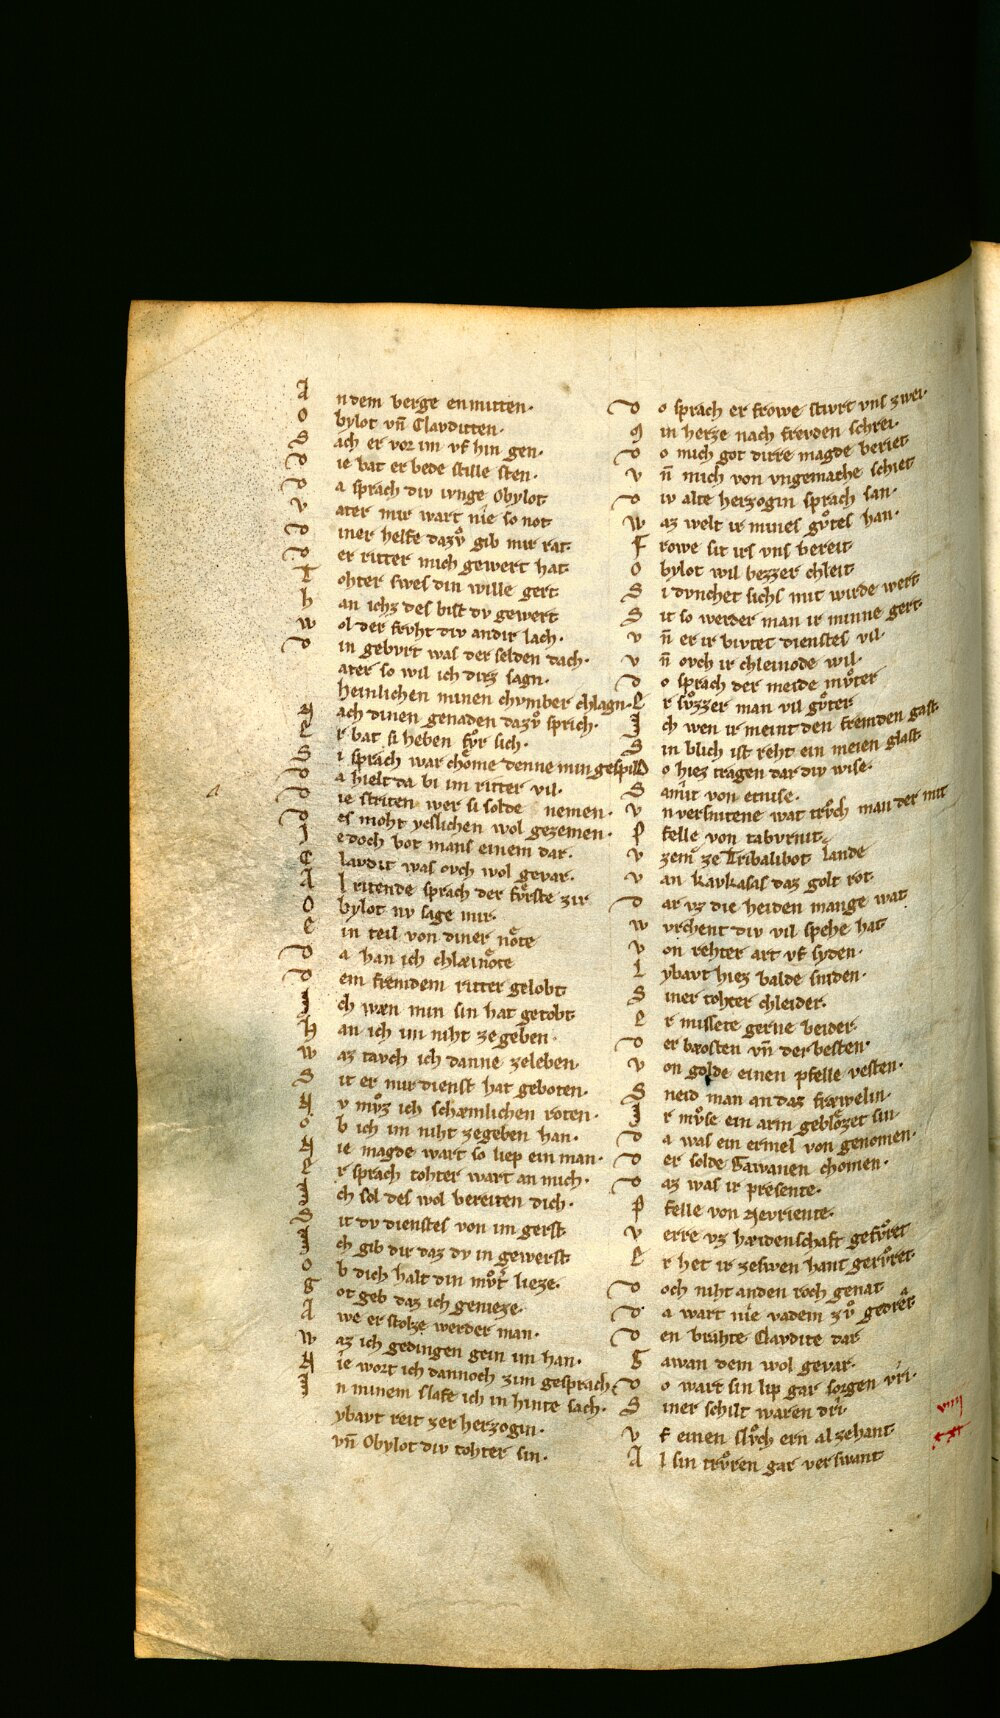 A n dem berge enmitten·
O bylot vn̄ Clavditten·
S ach er vor im vf hin gen·
D ie bat er bede stille sten·
D a sprach div ivnge Obylot
V ater mir wart nie so not
D iner helfe dazv̊ gib mir rat·
D er ritter mich gewert hat·
T ohter swes din wille gert
h an ichz des bist dv gewert
w ol der frvht div andir lach·
D in gebvrt was der selden dach·
ater so wil ich dirz sagn·
heinlichen minen chvmber chlagn·
N ach dinen genaden dazv̊ sprich·
E r bat si heben fv̊r sich·
S i sprach war chome denne min gespil
D a hielt da bi im ritter vil·
D ie striten wer si solde nemen·
D es moht yeslichen wol gezemen·
I edoch bot mans einem dar·
C lavdit was ovch wol gevar·
A l ritende sprach der fv̊rste zir
O bylot nv sage mir·
E in teil von diner note
D a han ich chlæinote
D em fremdem ritter gelobt
I ch wæn min sin hat getobt
h an ich im niht zegeben·
w az tavch ich danne zeleben·
S it er mir dienst hat geboten·
N v mv̊z ich schæmlichen roten·
O b ich im niht zegeben han·
N ie magde wart so liep ein man·
E r sprach tohter wart an mich·
I ch sol des wol bereiten dich·
S it dv dienstes von im gerst
I ch gib dir daz dv in gewerst
O b dich halt din mv̊ter lieze·
G ot geb daz ich genieze·
A we er stolze werder man·
w az ich gedingen gein im han·
N ie wort ich dannoch zim gesprach·
I n minem slafe ich in hinte sach·
ybavt reit zer herzogin·
vn̄ Obylot div tohter sin·
D o sprach er frowe stivrt vns zwei·
M in herze nach frevden schrei·
D o mich got dirre magde beriet
V n̄ mich von vngemache schiet
D iv alte herzogin sprach san·
W az welt ir mines gv̊tes han·
F rowe sit irs vns bereit
O bylot wil bezzer chleit
S i dvnchet sichs mit wirde wert
S it so werder man ir minne gert·
V n̄ er ir bivtet dienstes vil·
V n̄ ovch ir chleinode wil·
D o sprach der meide mv̊ter
E r sv̊zzer man vil gv̊ter
I ch wen ir meint den fremden gast
S in blich ist reht ein meien glast
D o hiez tragen dar div wise·
S amit von etnise·
V nversnitene wat trv̊ch man der mit
P felle von tabvrnit
V zem ze Tribalibot lande
V an kavkasas daz golt rot
D ar vz die heiden mange wat
w vrchent div vil spehe hat
V on rehter art vf syden·
L ybavt hiez balde sniden·
S iner tohter chleider·
E r missete gerne beider·
D er bœsten vn̄ der besten·
V on golde einen pfelle vesten·
S neid man an daz frœwelin·
I r mv̊se ein arm geblozet sin·
D a was ein ermel von genomen·
D er solde Gawanen chomen·
D az was ir presente·
P felle von Nevriente·
V erre vz hæidenschaft gefv̊ret
E r het ir zeswen hant gerv̊ret·
D och niht anden roch genat
D a wart nie vadem zv̊ gedrêt
D en brahte Clavdite dar
G awan dem wol gevar·
D o wart sin lip gar sorgen vri·
S iner schilt waren dri·
V f einen slv̊ch ern al zehant·
A l sin trv̊ren gar verswant